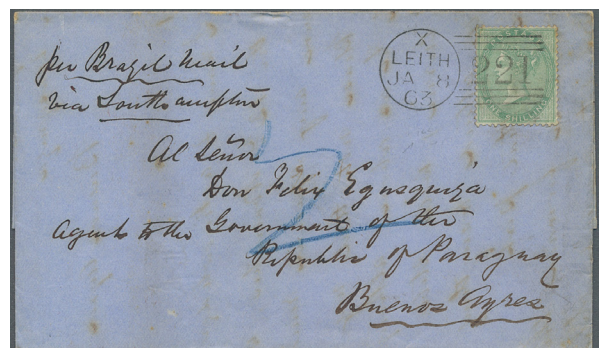 per Brazil Mail
via Southampton
X
LEITH
JA 8
63
221
POSTAGE
ONE SHILLING
2
Al Señor
Don Felix Egusquiza
Agent to the Government of the
Republic of Paraguay
Buenos Ayres